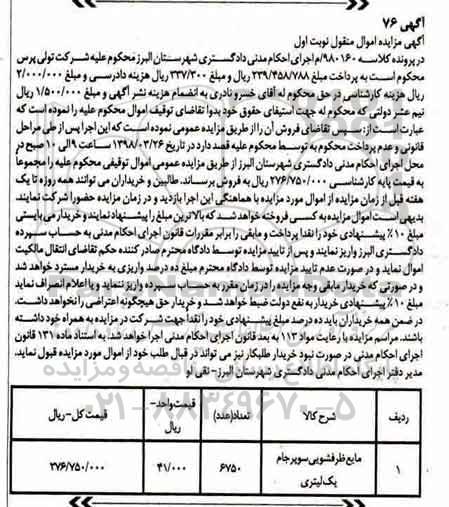 آگهی ۷۶
آگهی مزایده اموال منقول نوبت اول
در پرونده کلاسه ۹۸۰۱۶۰/م اجرای احکام مدنی دادگستری شهرستان البرز محکوم علیه شرکت تولی پرس
محکوم است به پرداخت مبلغ ۲۳۹/۴۵۸/۷۸۸ ریال و مبلغ ۳۳۷/۳۰۰ ریال هزینه دادرسی و مبلغ ۲/۰۰۰/۰۰۰
ریال هزینه کارشناسی در حق محکوم له آقای خسرو نادری به انضمام هزینه نشر آگهی و مبلغ ۱/۵۰۰/۰۰۰ ریال
نیم عشر دولتی که محکوم له جهت استیفای حقوق خود بدوا تقاضای توقیف اموال محکوم علیه را نموده است که
عبارت است از: سپس تقاضای فروش آن را از طریق مزایده عمومی نموده است که این اجرا پس از طی مراحل
قانونی و عدم پرداخت محکوم به توسط محکوم علیه قصد دارد در تاریخ ۱۳۹۸/۰۳/۲۶ ساعت ۹ الی ۱۰ صبح در
محل اجرای احکام مدنی دادگستری شهرستان البرز از طریق مزایده عمومی اموال توقیفی محکوم علیه را مجموعاً
به قیمت پایه کارشناسی ۲۷۶/۷۵۰/۰۰۰ ریال به فروش برساند. طالبین و خریداران می توانند همه روزه تا یک
هفته قبل از زمان مزایده از اموال مورد مزایده با هماهنگی این اجرا بازدید و در زمان مزایده حضور شرکت نمایند.
بدیهی است اموال مزایده به کسی فروخته خواهد شد که بالاترین مبلغ را پیشنهاد نمایند و خریدار می بایستی
مبلغ ۱۰٪ پیشنهادی خود را نقدا پرداخت و مابقی را برابر مقررات قانون اجرای احکام مدنی به حساب سپرده
دادگستری البرز واریز نمایند و پس از تایید مزایده توسط دادگاه محترم صادر کننده حکم تقاضای انتقال مالکیت
اموال نماید و در صورت عدم تایید مزایده توسط دادگاه محترم مبلغ ده درصد واریزی به خریدار مسترد خواهد شد
و در صورتی که خریدار مابقی وجه مزایده را در زمان مقرر به حساب سپرده واریز ننماید و یا اعلام انصراف نماید
مبلغ ۱۰٪ پیشنهادی خریدار به نفع دولت ضبط خواهد شد و خریدار حق هیچگونه اعتراضی را نخواهد داشت.
در ضمن همه خریداران باید ده درصد مبلغ پیشنهادی خود را نقدا جهت شرکت در مزایده به همراه خود داشته
باشند. مراسم مزایده با رعایت مواد ۱۱۳ به بعد قانون اجرای احکام مدنی اجرا خواهد شد. به استناد ماده ۱۳۱ قانون
اجرای احکام مدنی در صورت نبود خریدار طلبکار نیز می تواند در قبال طلب خود از اموال مورد مزایده قبول نماید.
مدیر دفتر اجرای احکام مدنی دادگستری شهرستان البرز - تقی لو
ردیف شرح کالا تعداد(عدد) قیمت واحد-ریال قیمت کل-ریال
۱ مایع ظرفشویی سوپر جام یک لیتری ۶۷۵۰ ۴۱/۰۰۰ ۲۷۶/۷۵۰/۰۰۰
۰۲۱-۸۸۳۴۹۶۷۰-۵